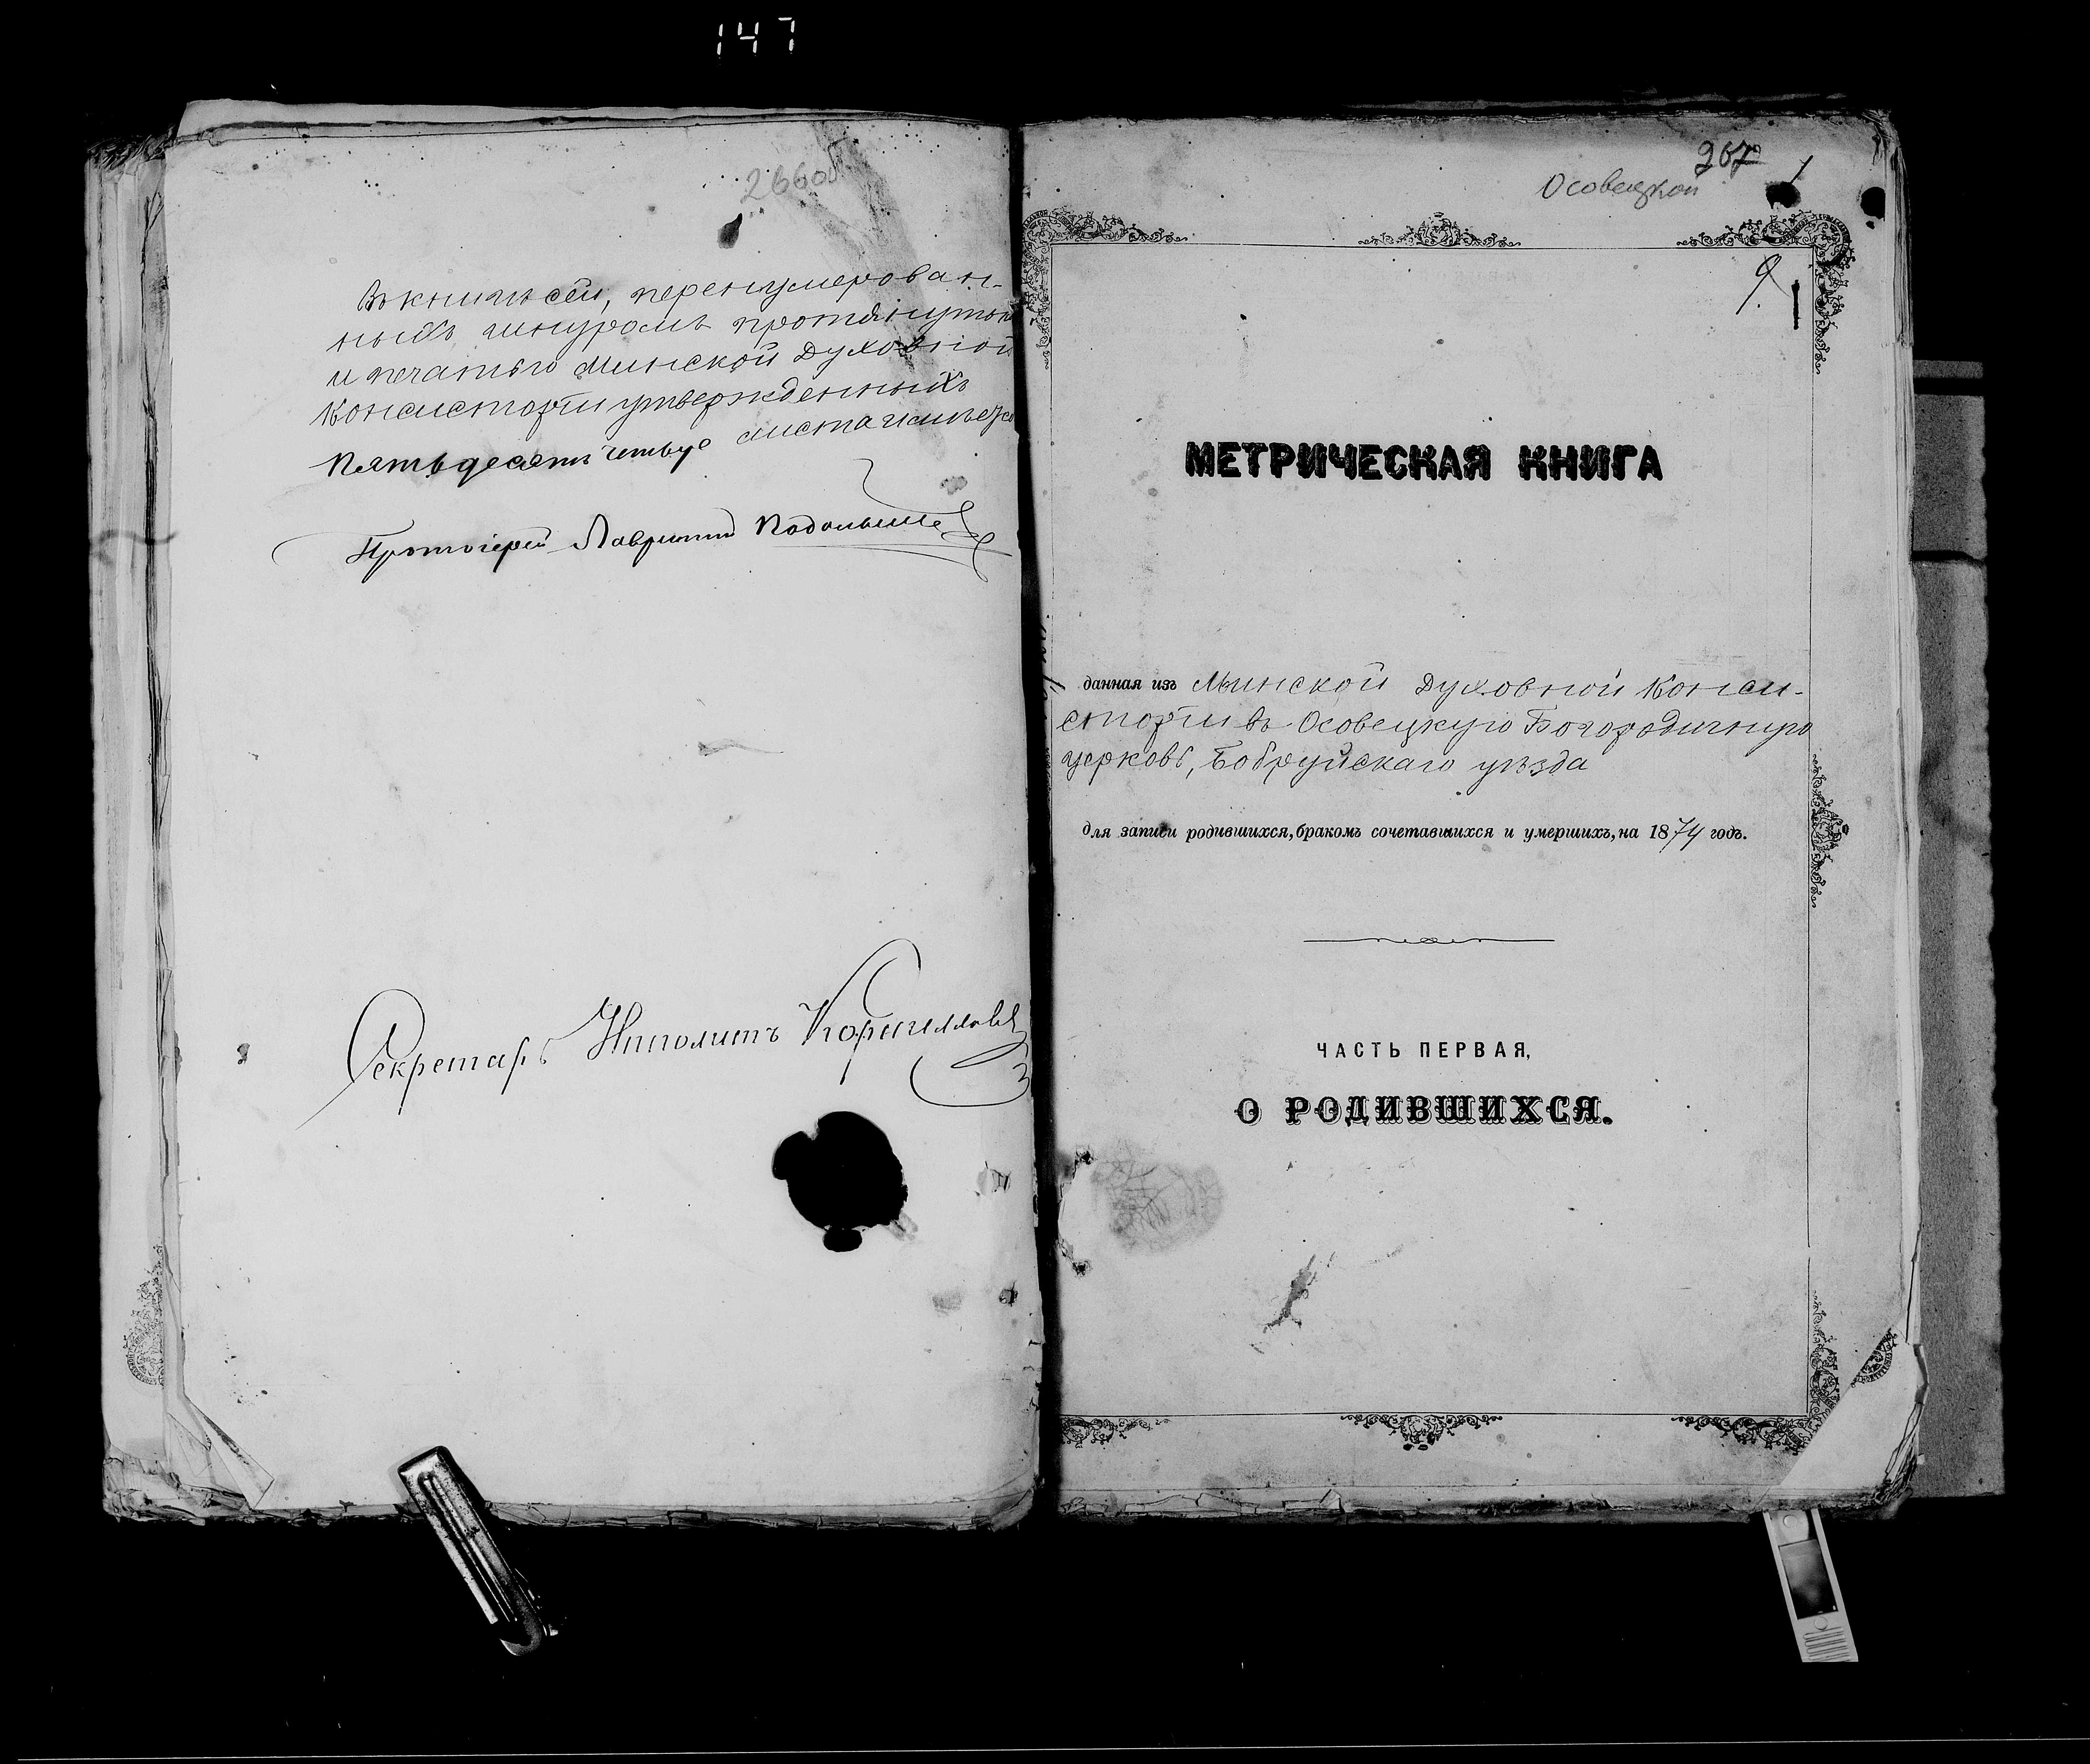 147
266об
Въ книгѣ сей, перенумерован-
ныхъ шнуромъ протянутых
и печатью Минской Духовной
Консисторіи утвержденныхъ
Пятьдесятъ четыре листа
Протоіерей Лаврентій
Секретарь Ипполитъ
267
Осовецкой
1
МЕТРИЧЕСКАЯ КНИГА
данная изъ Минской Духовной Конси-
сторіи въ Осовецкую Богородичную
церковь, Бобруйскаго уѣзда
для записи родившихся, бракомъ сочетавшихся и умершихъ, на 1874 годъ.
ЧАСТЬ ПЕРВАЯ,
О РОДИВШИХСЯ.